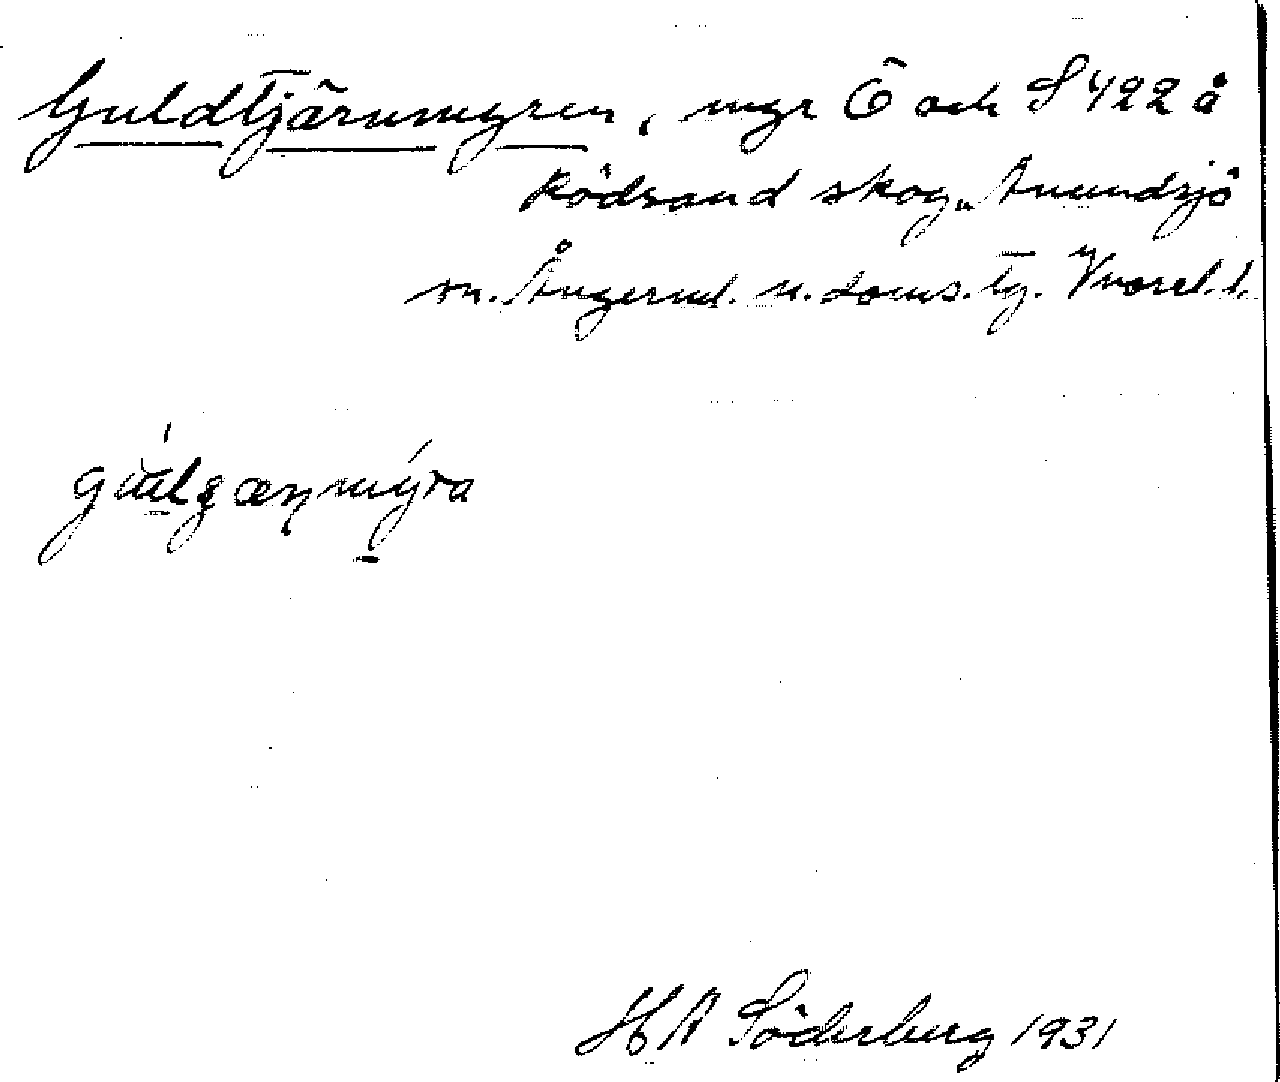 Guldtjärnmyren, myr Ö och S 422 å
Rödsand skog, Anundsjö
sn. Ångerml. n. doms. tg. Ivarsl. l.
gulgænmýra
H A Söderberg 1931